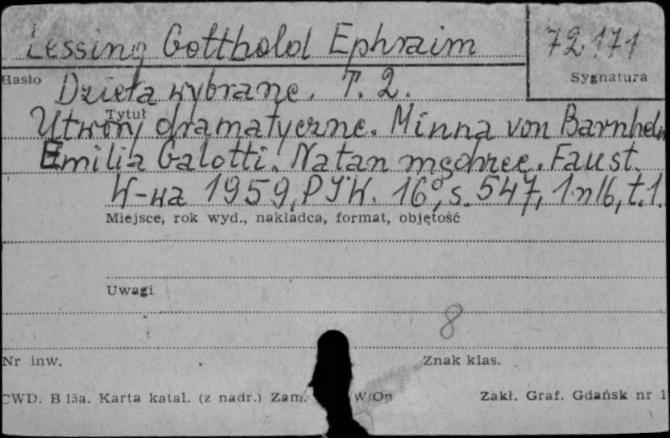 Lessing Gotthold Ephraim
72.171
Hasło
Sygnatura
Dzieła wybrane. T. 2.
Tytuł
Utwory dramatyczne. Minna von Barnhelm
Emilia Galotti. Natan mędrzec. Faust.
W-wa 1959, PIW. 16°, s. 547, 1 nlb, t. 1.
Miejsce, rok wyd., nakładca, format, objętość
Uwagi
8
Nr inw.
Znak klas.
CWD. B 15a. Karta katal. (z nadr.) Zam. W/On Zakł. Graf. Gdańsk nr 1